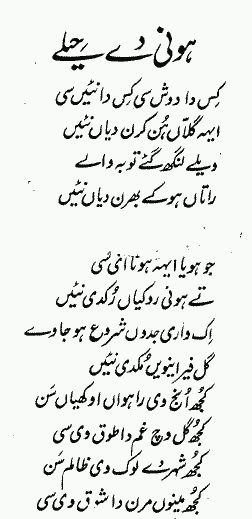 ہونی دے حیلے
کس دا دوش سی کس دا نئیں سی
ایہہ گلاں ہن کرن دیاں نئیں
ویلے لنگھ گئے توبہ والے
راتاں ہوکے بھرن دیاں نئیں
جو ہویا ایہہ ہونا ای سی
تے ہونی روکیاں رکدی نئیں
اک واری جدوں شروع ہو جاوے
گل فیر اینویں مکدی نئیں
کجھ انج وی راہواں اوکھیاں سن
کجھ گل وچ غم دا طوق وی سی
کجھ شہر دے لوک وی ظالم سن
کجھ مینوں مرن دا شوق وی سی